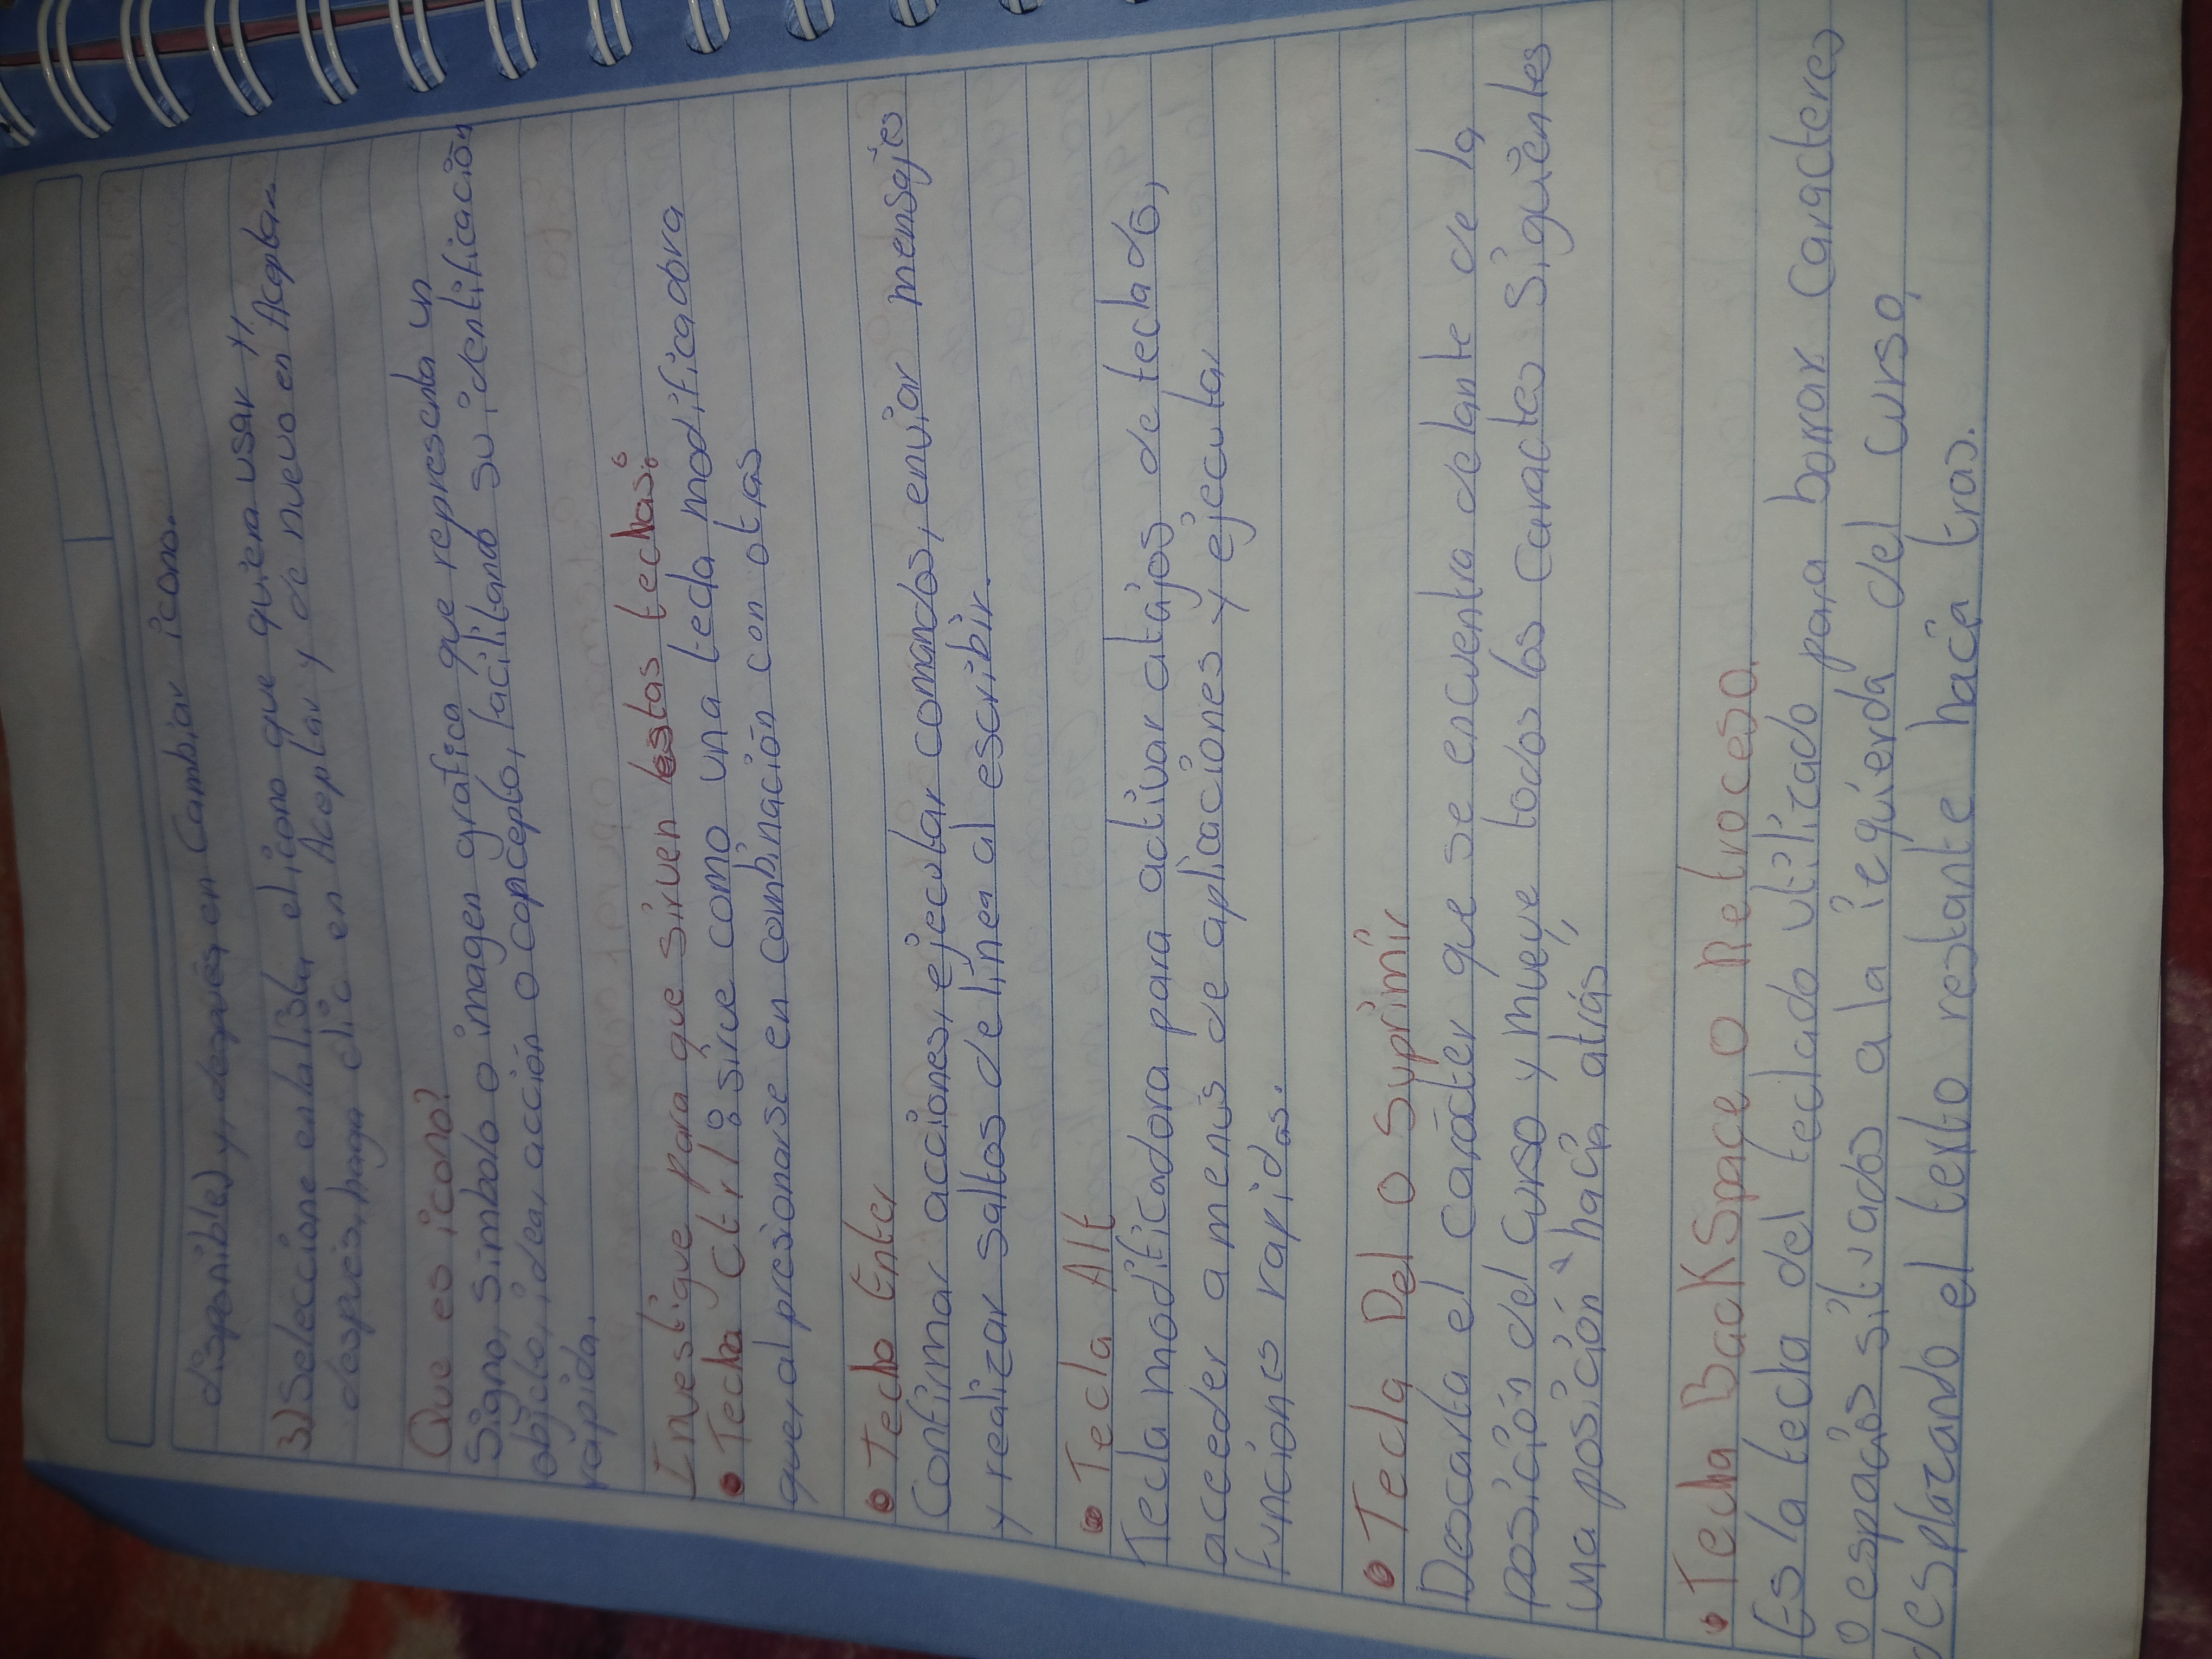 disponibles y, después, en Cambiar icono.
3) Seleccione en la lista el icono que quiera usar y,
después, haga clic en Aceptar y de nuevo en Aceptar.
Que es icono?
Signo, simbolo o imagen gratica que representa un
objeto, idea, acción o concepto, facilitando su identificación
rápida.
Investigue para que sirven estas teclas:
• Tecla Ctrl: sirve como una tecla modificadora
que al presionarse en combinación con otras
• Tecla Enter
Confirmar acciones, ejecutar comandos, enviar mensajes
y realizar saltos de línea al escribir.
• Tecla Alt
Tecla modificadora para activar atajos de teclado,
acceder a menús de aplicaciones y ejecutar
funciones rapidas.
• Tecla Del o Suprimir
Descarta el carácter que se encuentra delante de la
posición del curso y mueve todos los caractes siguientes
una posición "hacia atrás"
• Tecla BackSpace o Retroceso
Es la tecla del teclado utilizado para borrar caracteres
o espacios situados a la izquierda del curso,
desplazando el texto restante hacia tras.